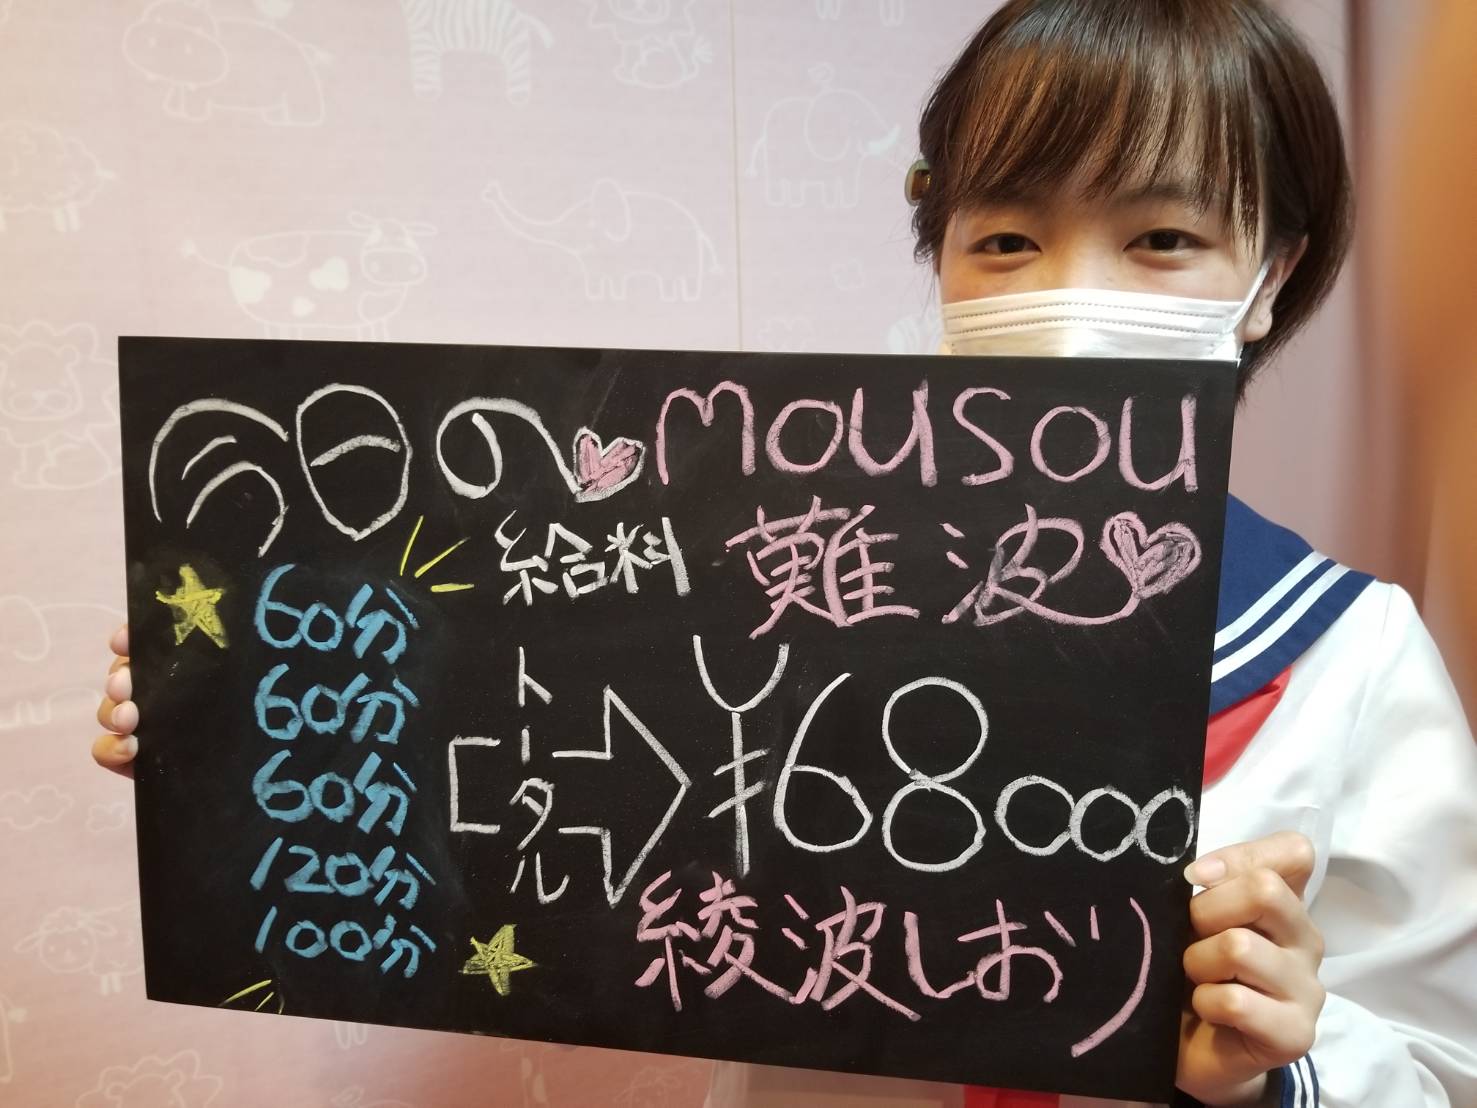 今日の mousou
給料 難波
60分
60分
60分
120分
100分
トータル
¥68000
綾波しおり